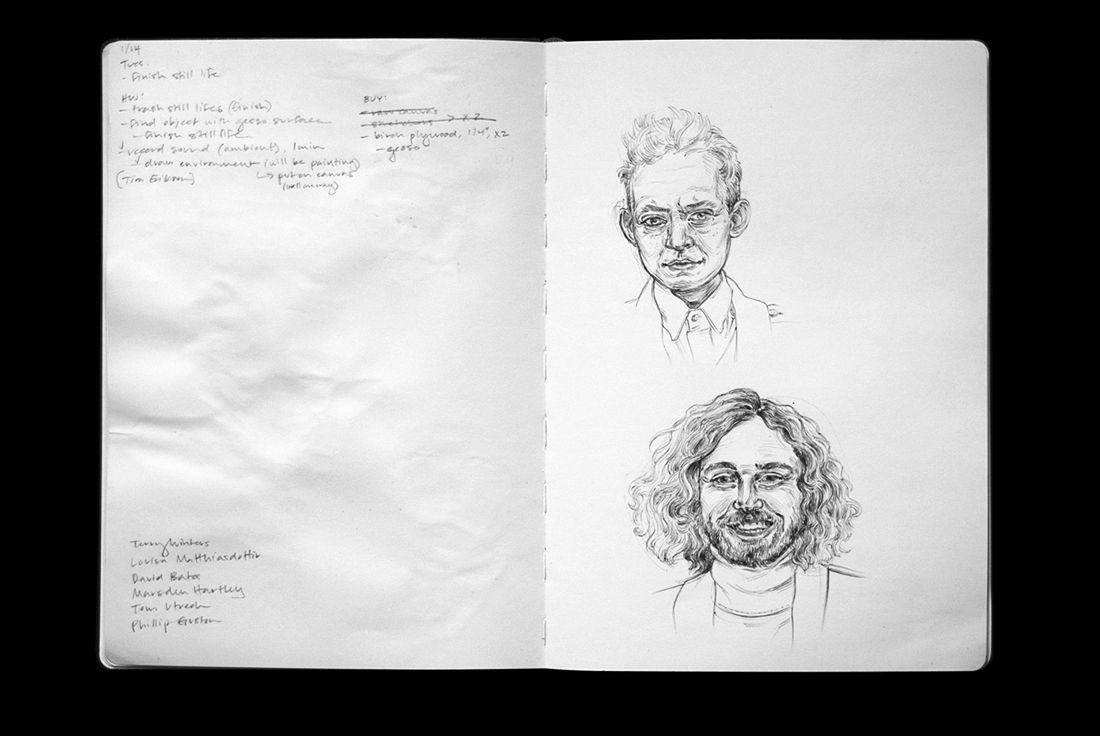 1/24
Tues:
- finish still life
HW:
- trash still lifes (finish)
- find object with gesso surface
- finish still life
- record sound (ambient), 1 min
draw environment (will be painting)
↳ put on canvas
[Tim Erikson]
BUY:
- raw canvas
> x 2
- birch plywood, 1/4", x2
- gesso
Terry Winters
Louisa Matthiasdottir
David Bates
Marsden Hartley
Tom
Phillip Guston